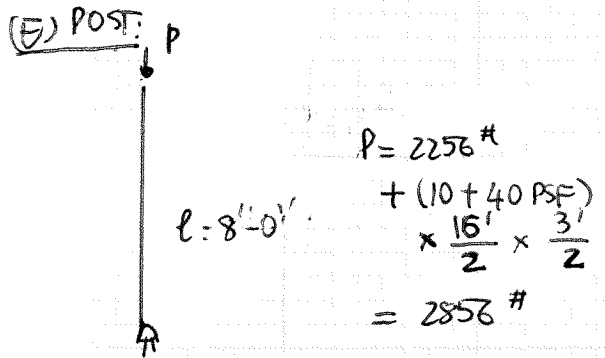 (E) POST:
P
l = 8'-0"
P = 2256 #
+ (10 + 40 PSF)
× 16'/2 × 3'/2
= 2856 #